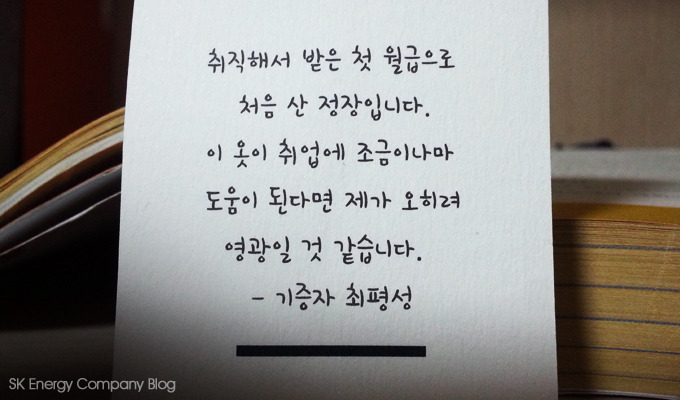 취직해서 받은 첫 월급으로
처음 산 정장입니다.
이 옷이 취업에 조금이나마
도움이 된다면 제가 오히려
영광일 것 같습니다.
- 기증자 최평성
SK Energy Company Blog